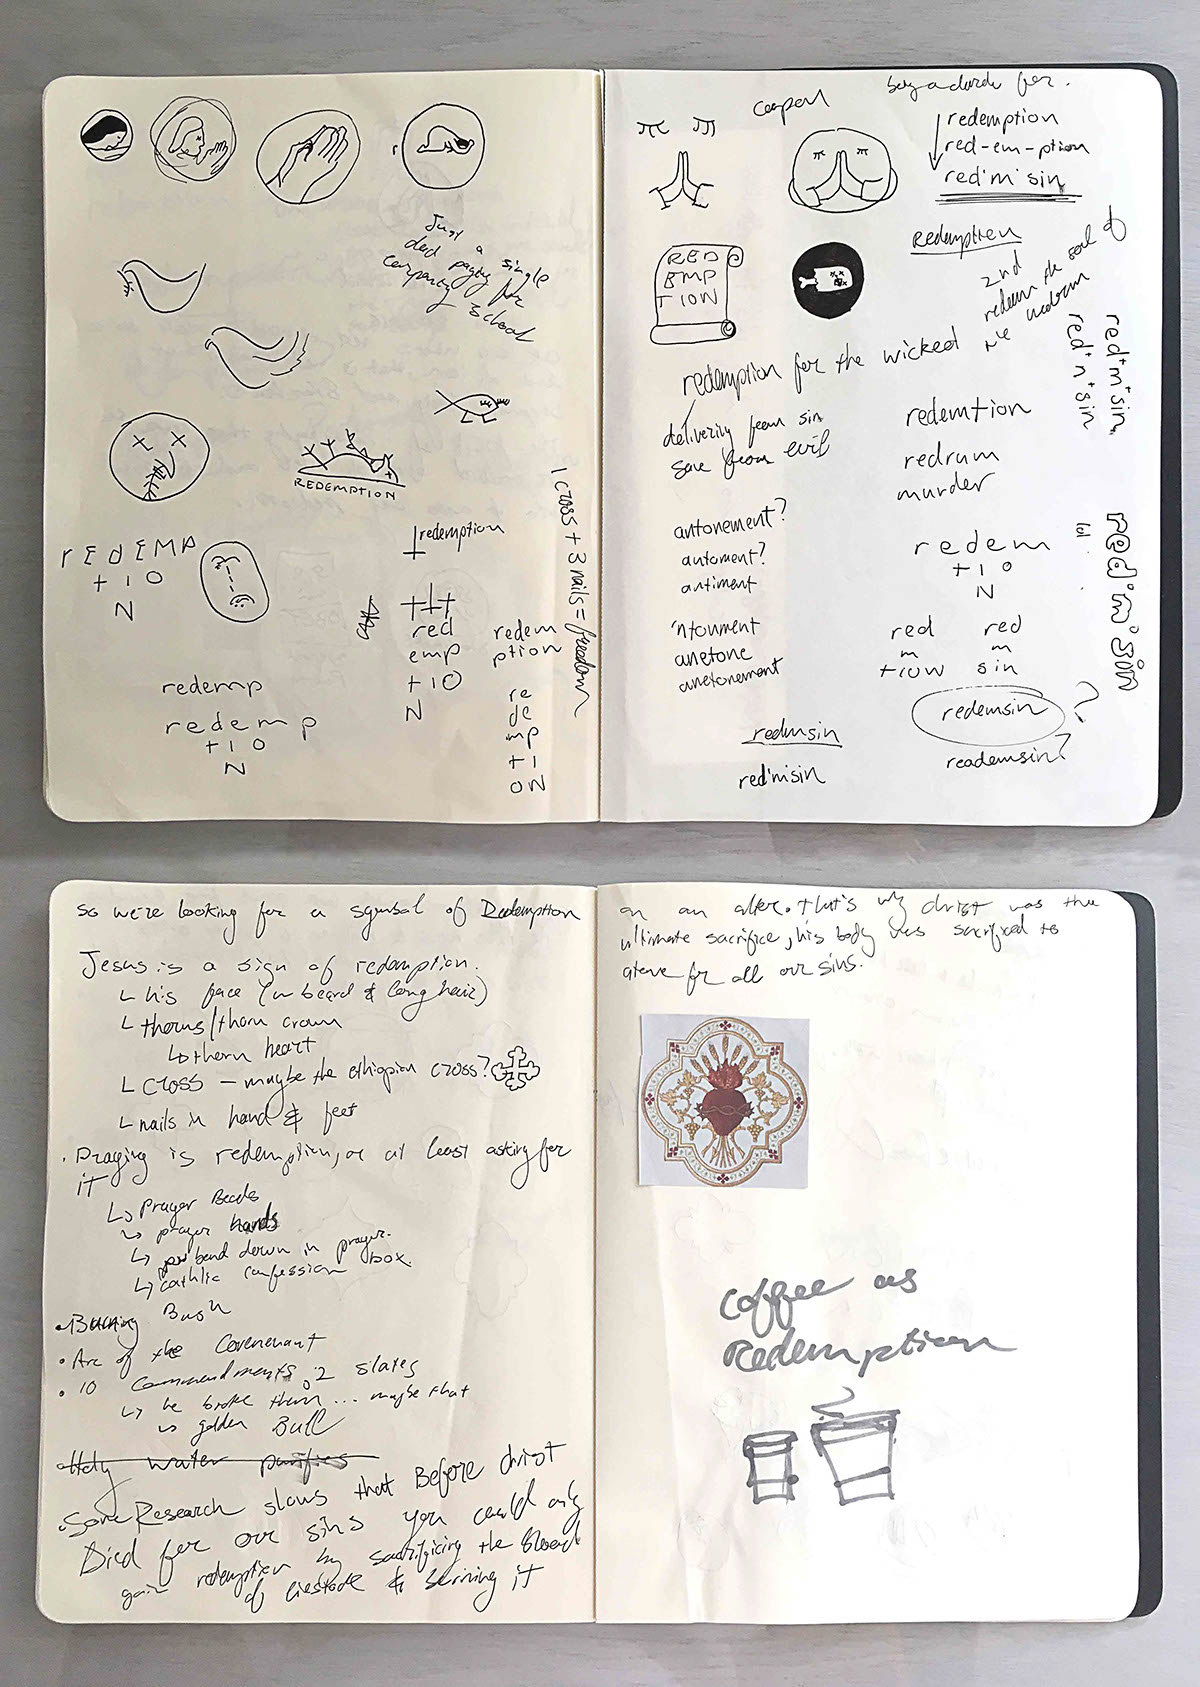 Just a
single
for
company
school
REDEMPTION
rEdEMP
tIO
N
redemption
red
emp
tIO
N
redem
ption
re
de
mp
ti
ON
redemp
redemp
tIO
N
1 cross + 3 nails = freedom
for.
redemption
red-em-ption
red'm'sin
RED
EMP
TION
Redemption
2nd
redeem the soul of
redemption for the wicked
red+m+sin
red+n+sin
delivering from sin
save from evil
redemtion
redrum
murder
antonement?
automent?
antiment
'ntoument
anetone
anetonement
redem
tio
N
red
m
tiow
red
m
sin
lol
red'm'sin
redemsin
?
readmsin?
redmsin
red'm'sin
So we're looking for a symbol of Redemption
Jesus is a sign of redemption.
his face (w beard & long hair)
thorns/thorn crown
thorn heart
cross – maybe the ethiopian cross?
nails in hand & feet
• Praying is redemption, or at least asking for
it
Prayer Beads
prayer hands
bend down in prayer.
cathlic confession box.
• Burning Bush
• Arc of the Covenenant
• 10 Commandments, 2 slates
he broke them... maybe that
golden Bull
• Holy water purifies
• Some Research shows that Before christ
Died for our sins you could only
gain redemption by sacrificing the blood
of livestock & burning it
on an alter. That's why christ was the
ultimate sacrifice, his body was sacrificed to
atone for all our sins.
Coffee as
Redemption